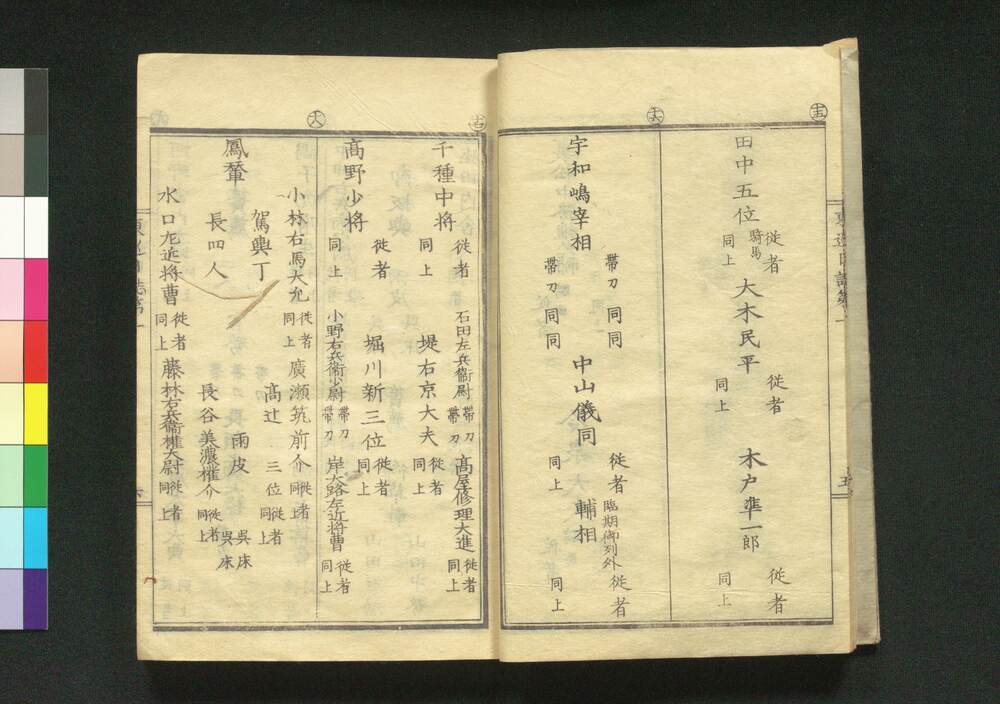 十三
田中五位
騎馬
従者
同上
大木民平
従者
同上
木戸準一郎
従者
同上
宇和嶋宰相
帯刀 同 同
帯刀 同 同
中山儀同
従者
同上
輔相
臨期御列外
従者
同上
千種中将
従者
同上
石田左兵衛尉
帯刀
帯刀
堤右京大夫
従者
同上
高屋修理大進
従者
同上
高野少将
従者
同上
小野右兵衛少尉
帯刀
帯刀
堀川新三位
従者
同上
岸大路左近将曹
従者
同上
小林右馬大允
従者
同上
廣瀬筑前介
従者
同上
鳳輦
駕輿丁
長四人
高辻三位
従者
同上
雨皮
呉床
呉床
長谷美濃権介
従者
同上
水口左近将曹
従者
同上
藤林右兵衛権大尉
従者
同上